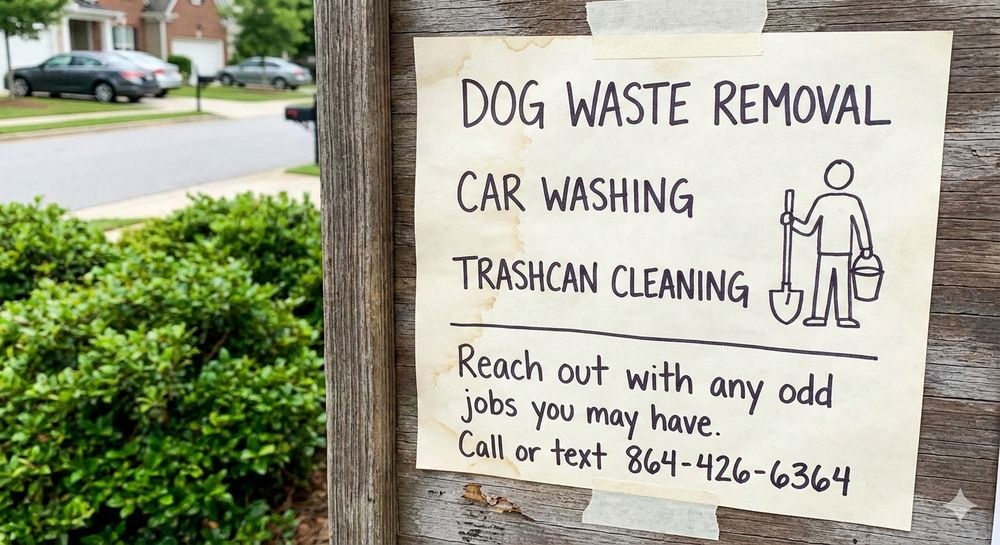 DOG WASTE REMOVAL
CAR WASHING
TRASHCAN CLEANING
Reach out with any odd
jobs you may have.
Call or text 864-426-6364